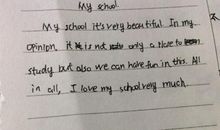 My school
My school it's very beautiful. In my
opinion it is not only a place to
study but also we can have fun in this. All
in all, I love my school very much.